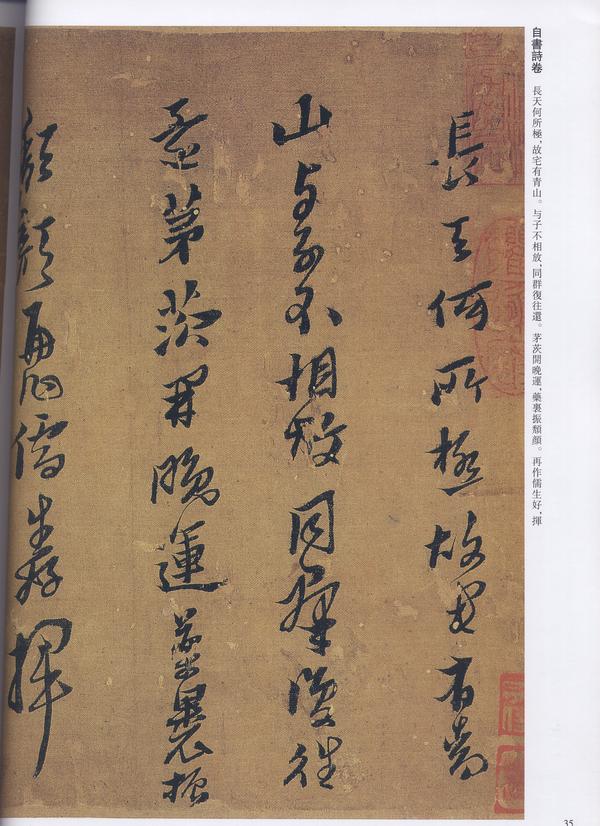 自書詩卷 長天何所極,故宅有青山。与子不相放,同群復往還。茅茨開晚運,藥裹振頹顏。再作儒生好,揮
長天何所極故宅有青
山与子不相放同群復往
還茅茨開晚運藥裹振
頹顏再作儒生好揮
35